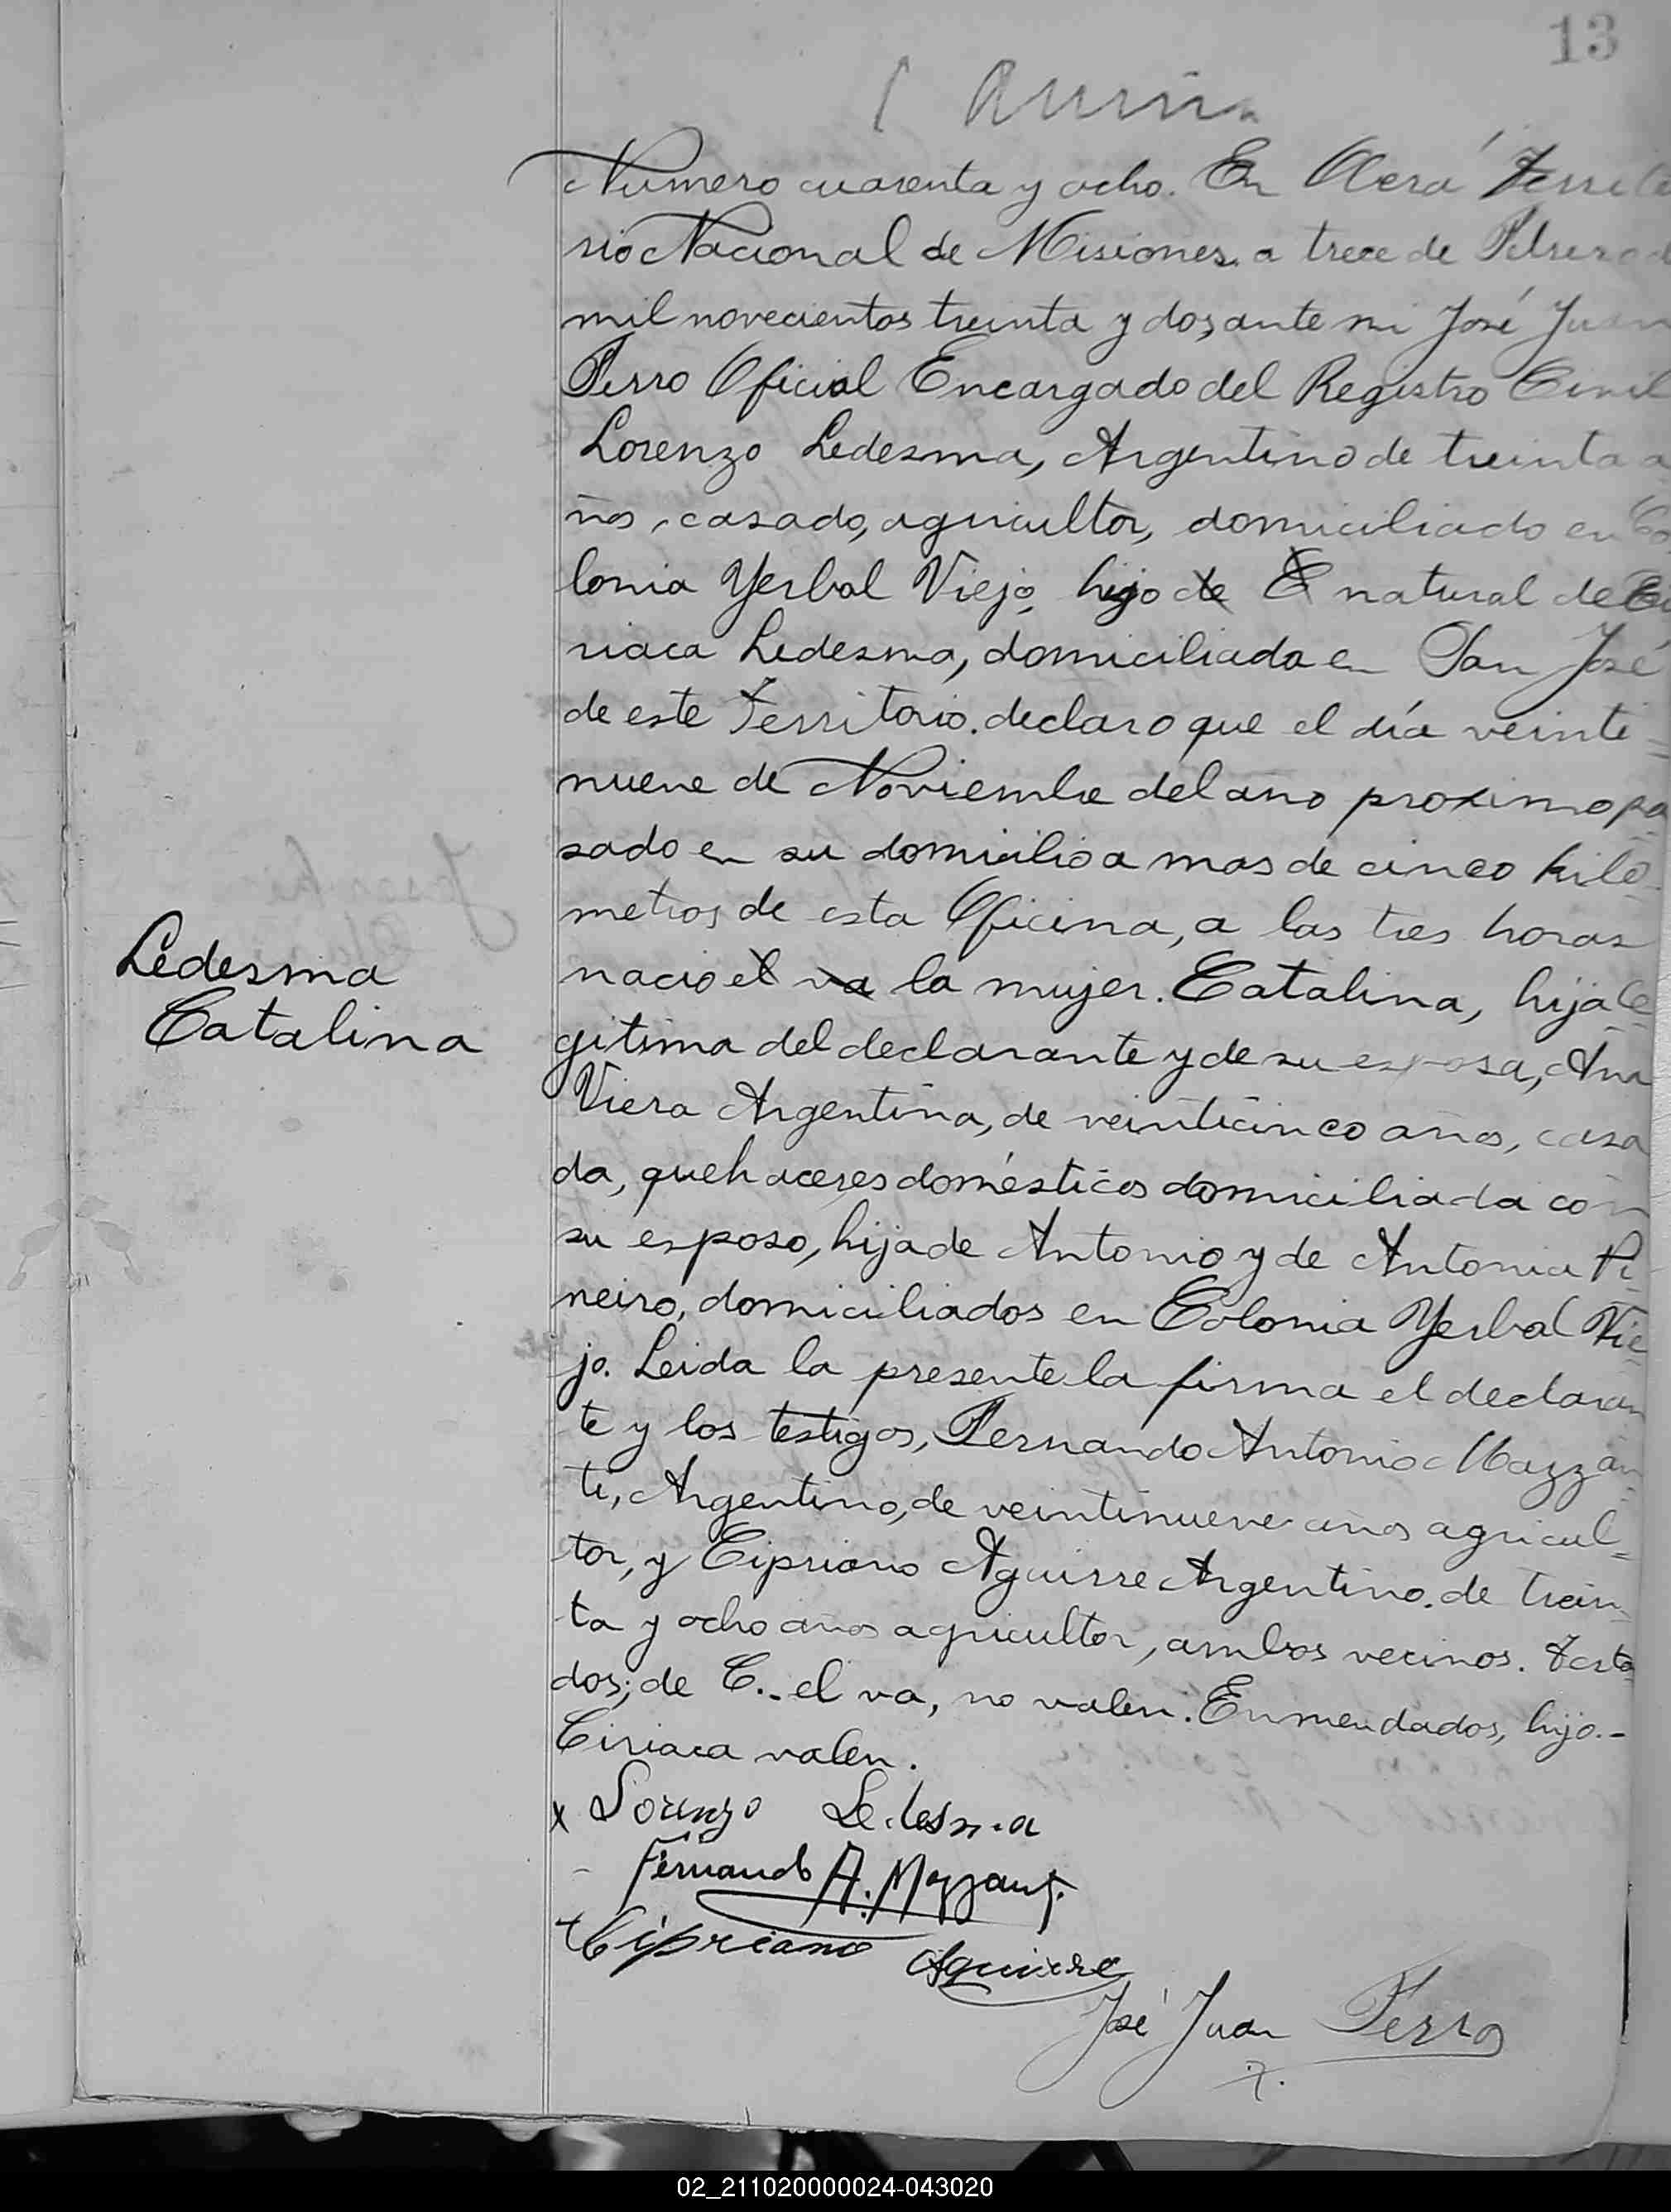 13
Numero cuarenta y ocho. En Oberá Territo
rio Nacional de Misiones a trece de Febrero d
mil novecientos treinta y dos, ante mi José Juan
Ferro Oficial Encargado del Registro Civil
Lorenzo Ledesma, Argentino de treinta a
ños, casado, agricultor, domiciliado en Co
lonia Yerbal Viejo, hijo de C natural de Ci
riaca Ledesma, domiciliada en San José
de este Territorio. declaro que el día veinti=
nueve de Noviembre del año proximo pa
sado en su domicilio a mas de cinco kilo-
metros de esta Oficina, a las tres horas
nacio el va la mujer. Catalina, hija le
gitima del declarante y de su esposa, Ana
Viera Argentina, de veinticinco años, casa
da, quehaceres domésticos domiciliada con
su esposo, hija de Antonio y de Antonia Pi
neiro, domiciliados en Colonia Yerbal Vie
jo. Leida la presente la firma el declaran
te y los testigos, Fernando Antonio Mazzan
ti, Argentino, de veintinueve años agricul=
tor, y Cipriano Aguirre Argentino. de trein
ta y ocho años agricultor, ambos vecinos. Testa
dos; de C.- el va, no valen. Enmendados, hijo.-
Ciriaca valen.
Ledesma
Catalina
x Lorenzo Ledesma
Fernando A. Mazzanti
Cipriano Aguirre
José Juan Ferro
02_211020000024-043020